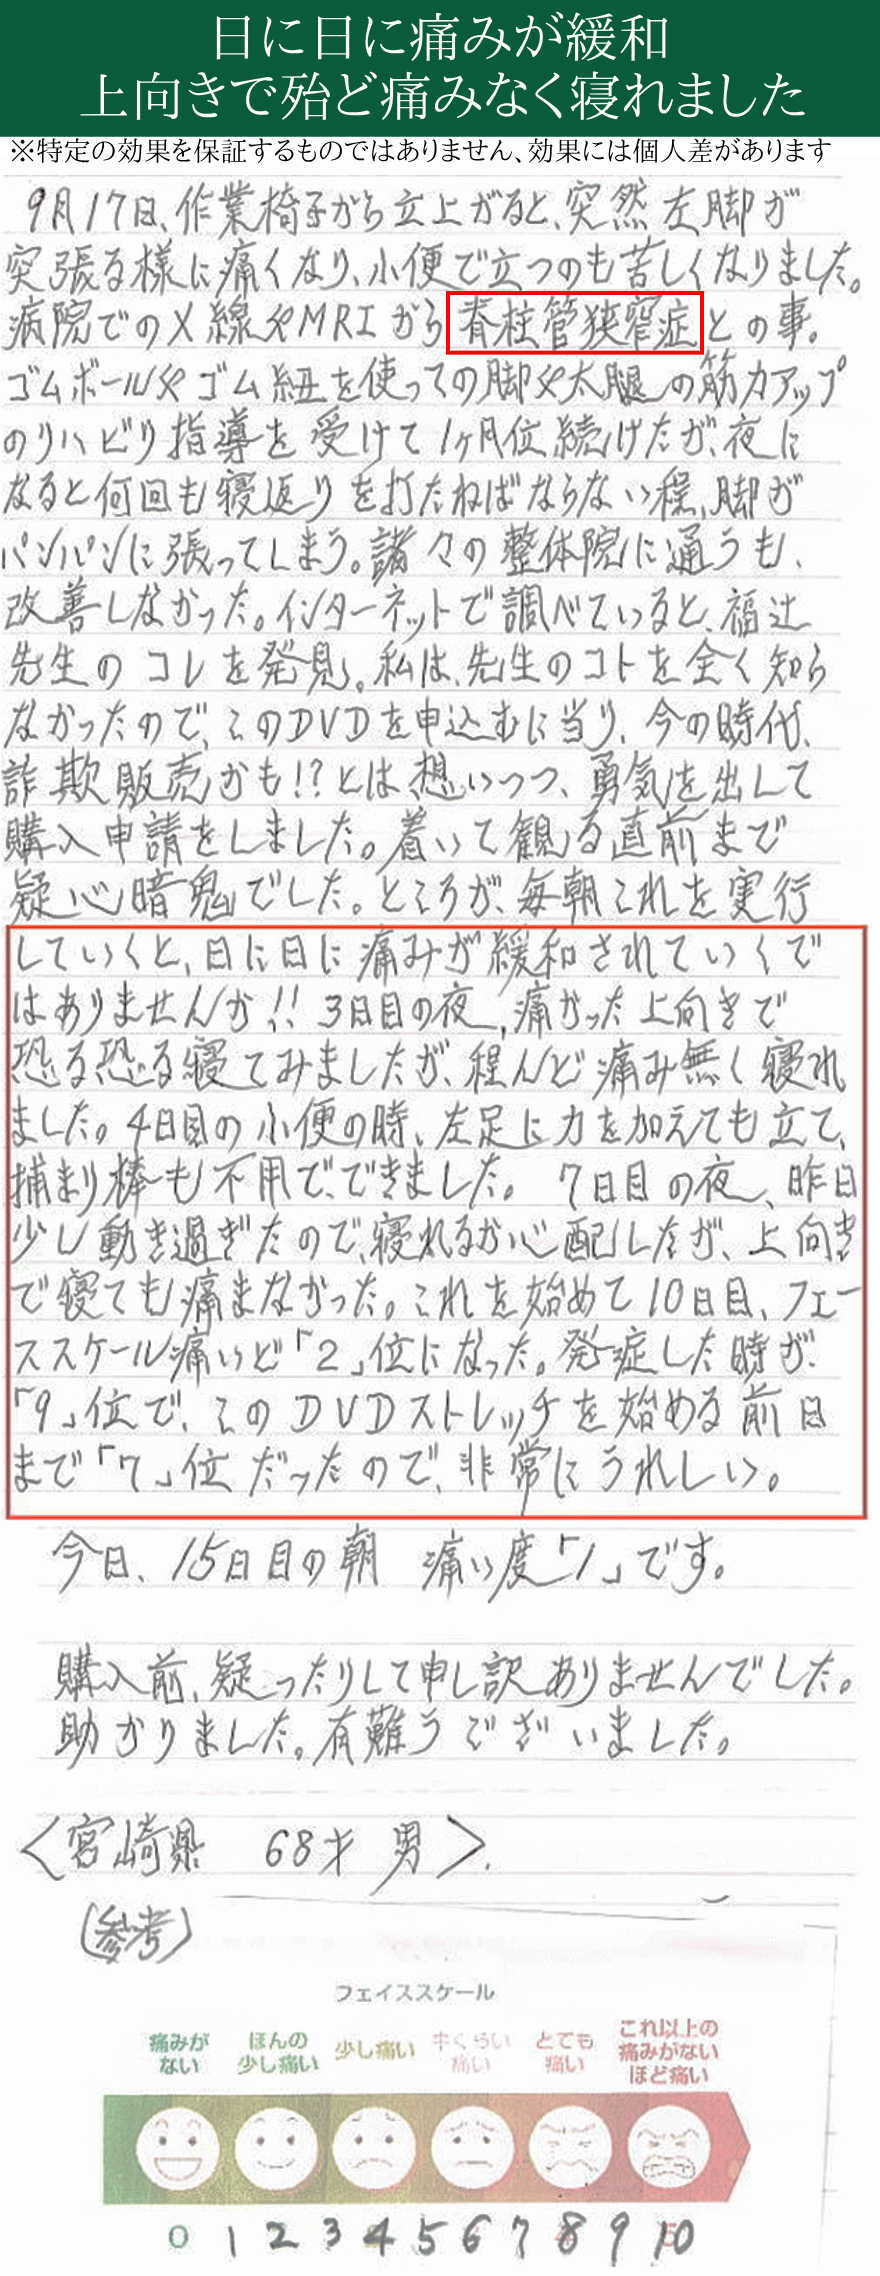 日に日に痛みが緩和
上向きで殆ど痛みなく寝れました
※特定の効果を保証するものではありません、効果には個人差があります
9月17日、作業椅子から立上がると、突然左脚が
突張る様に痛くなり、小便で立つのも苦しくなりました。
病院でのX線やMRIから脊柱管狭窄症との事。
ゴムボールやゴム紐を使っての脚や太腿の筋力アップ
のリハビリ指導を受けて1ヶ月位続けたが、夜に
なると何回も寝返りを打たねばならない程、脚が
パンパンに張ってしまう。諸々の整体院に通うも、
改善しなかった。インターネットで調べていると、福辻
先生のコレを発見。私は、先生のコトを全く知ら
なかったので、このDVDを申込むに当り、今の時代、
詐欺販売かも!?とは想いつつ、勇気を出して
購入申請をしました。着いて観る直前まで
疑心暗鬼でした。ところが、毎朝これを実行
していくと、日に日に痛みが緩和されていくで
はありませんか!! 3日目の夜、痛かった上向きで
恐る恐る寝てみましたが、程んど痛み無く寝れ
ました。4日目の小便の時、左足に力を加えても立て、
捕まり棒も不用で、できました。 7日目の夜、昨日
少し動き過ぎたので、寝れるか心配したが、上向き
で寝ても痛まなかった。これを始めて10日目、フェー
ススケール痛いど「2」位になった。発症した時が、
「9」位で、このDVDストレッチを始める前日
まで「7」位だったので、非常にうれしい。
今日、15日目の朝 痛い度「1」です。
購入前、疑ったりして申し訳ありませんでした。
助かりました。有難うございました。
<宮崎県 68才 男>.
(参考)
フェイススケール
痛みがない ほんの少し痛い 少し痛い 中くらい痛い とても痛い これ以上の痛みがないほど痛い
0 1 2 3 4 5 6 7 8 9 10